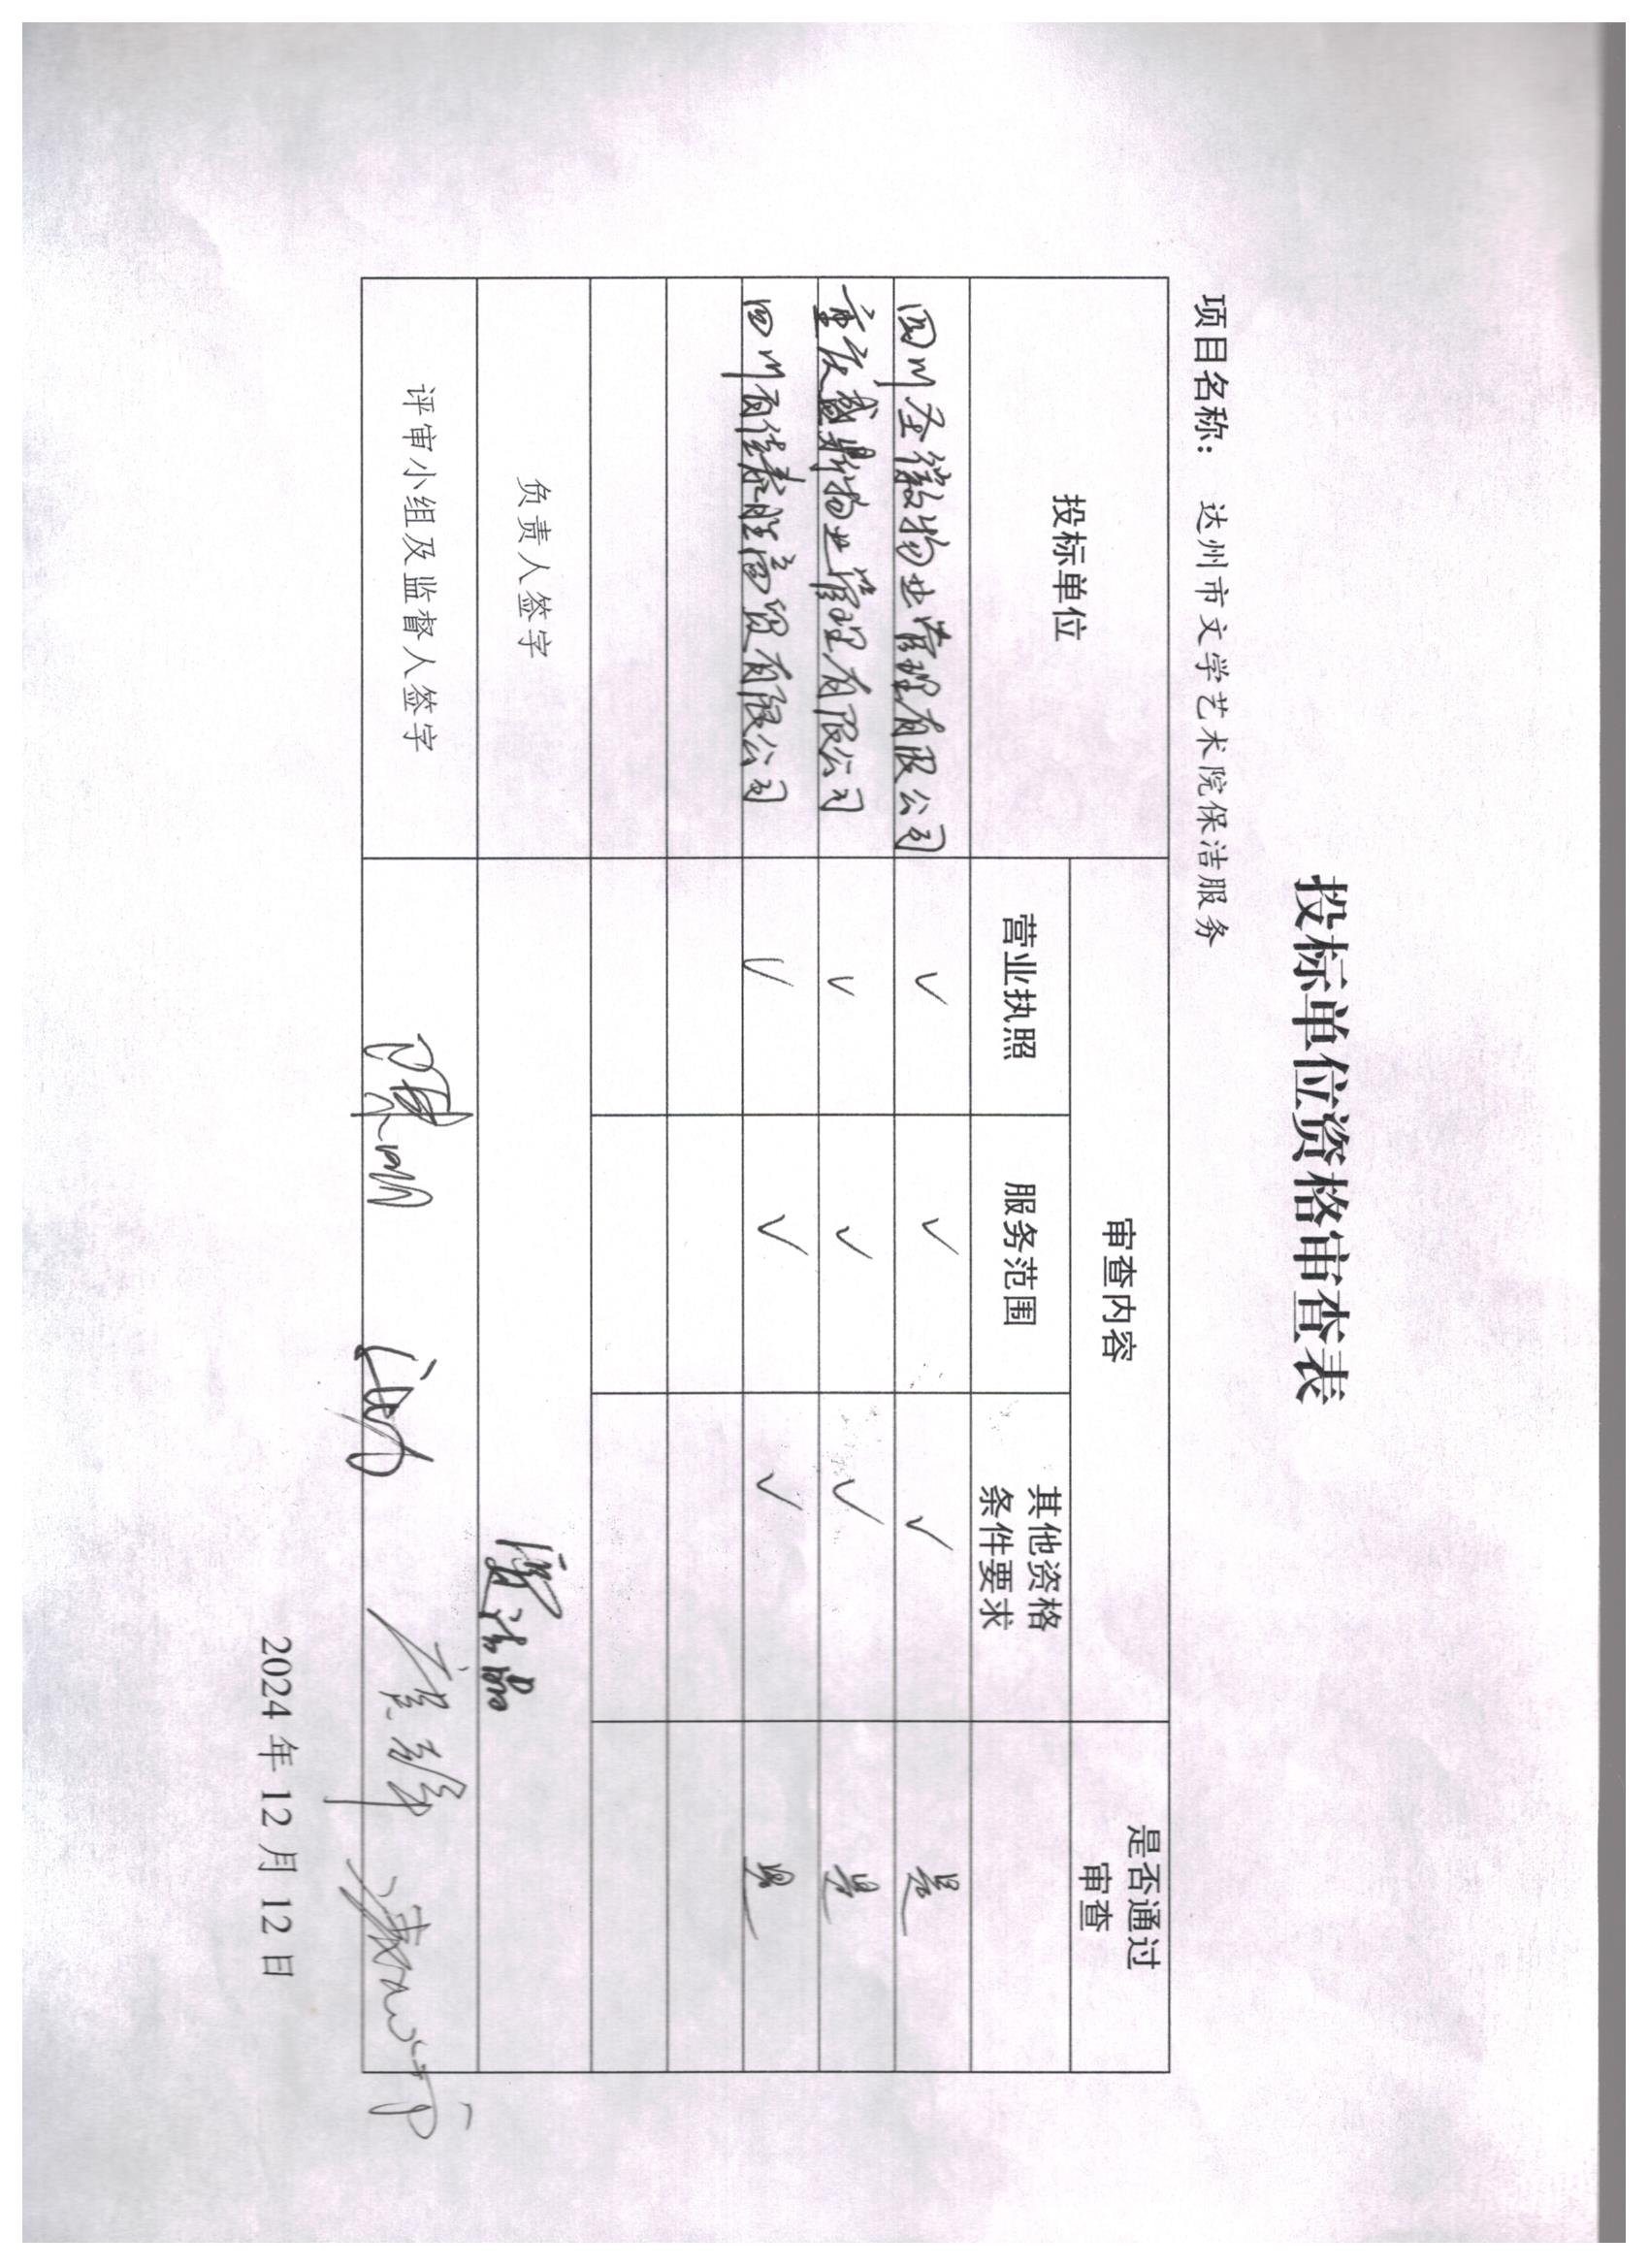 投标单位资格审查表
项目名称： 达州市文学艺术院保洁服务
投标单位 审查内容 是否通过审查
营业执照 服务范围 其他资格条件要求
四川圣徽物业管理有限公司 ✓ ✓ ✓ 是
重庆盛鼎物业管理有限公司 ✓ ✓ ✓ 是
四川 商贸有限公司 ✓ ✓ ✓ 是
负责人签字
评审小组及监督人签字
2024 年 12 月 12 日